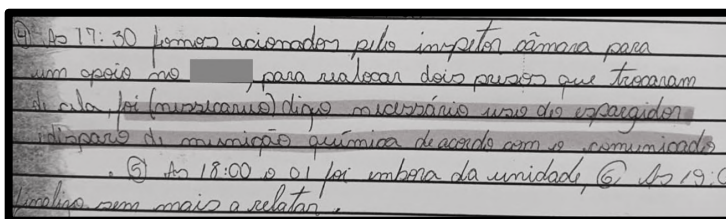 ④ Às 17:30 fomos acionados pelo inspetor câmara para
um apoio no , para realocar dois presos que trocaram
de cela, foi (nessicario) digo necessário uso do espargidor
disparo de munição química de acordo com o comunicado
. ⑤ Às 18:00 o 01 foi embora da unidade, ⑥ Às 19:0
sem mais a relatar.